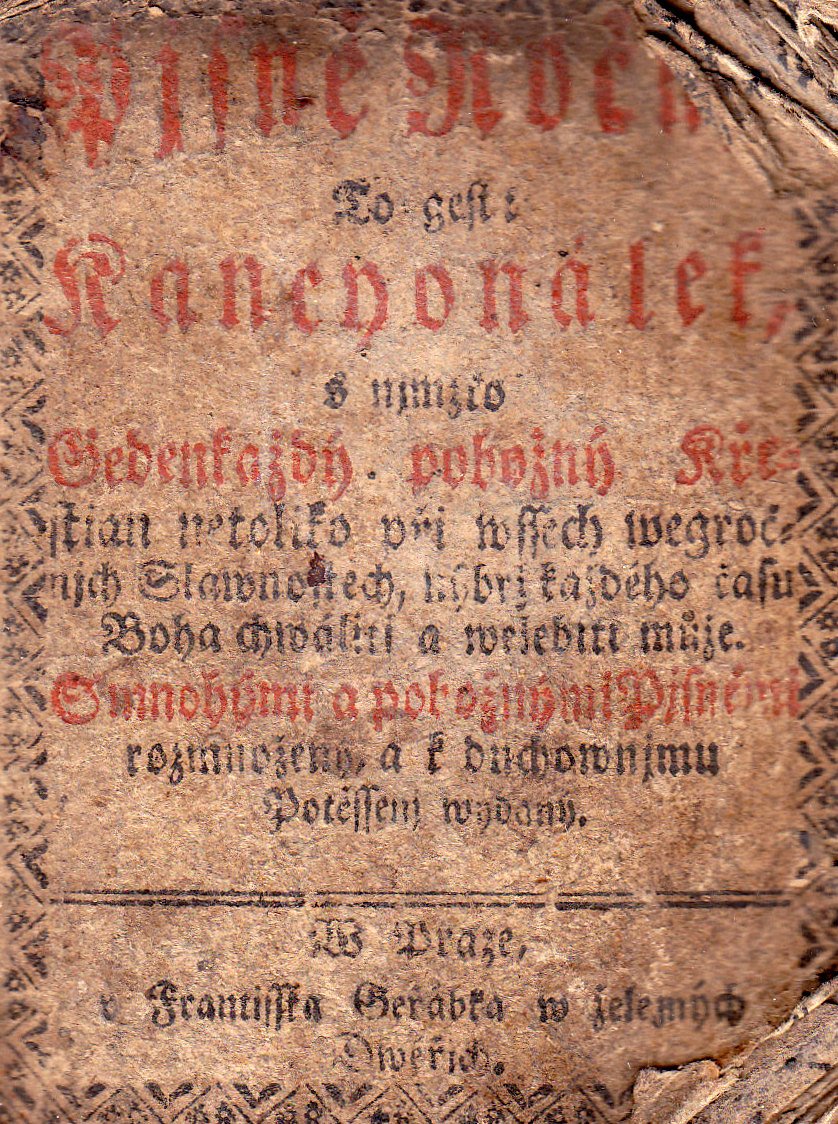 Pjsně Ročn
To gest:
Kancyonálek,
s njmžto
Gedenkaždý pobožný Kře-
stian netoliko při wssech wegroč-
njch Slawnostech, nýbrž každého času
Boha chwáliti a welebiti může.
S mnohými a pobožnými Pjsněmi
rozmnožený, a k duchownjmu
Potěssenj wydaný.
W Praze,
v Frantisska Geřábka w železných
Dwéřjch.